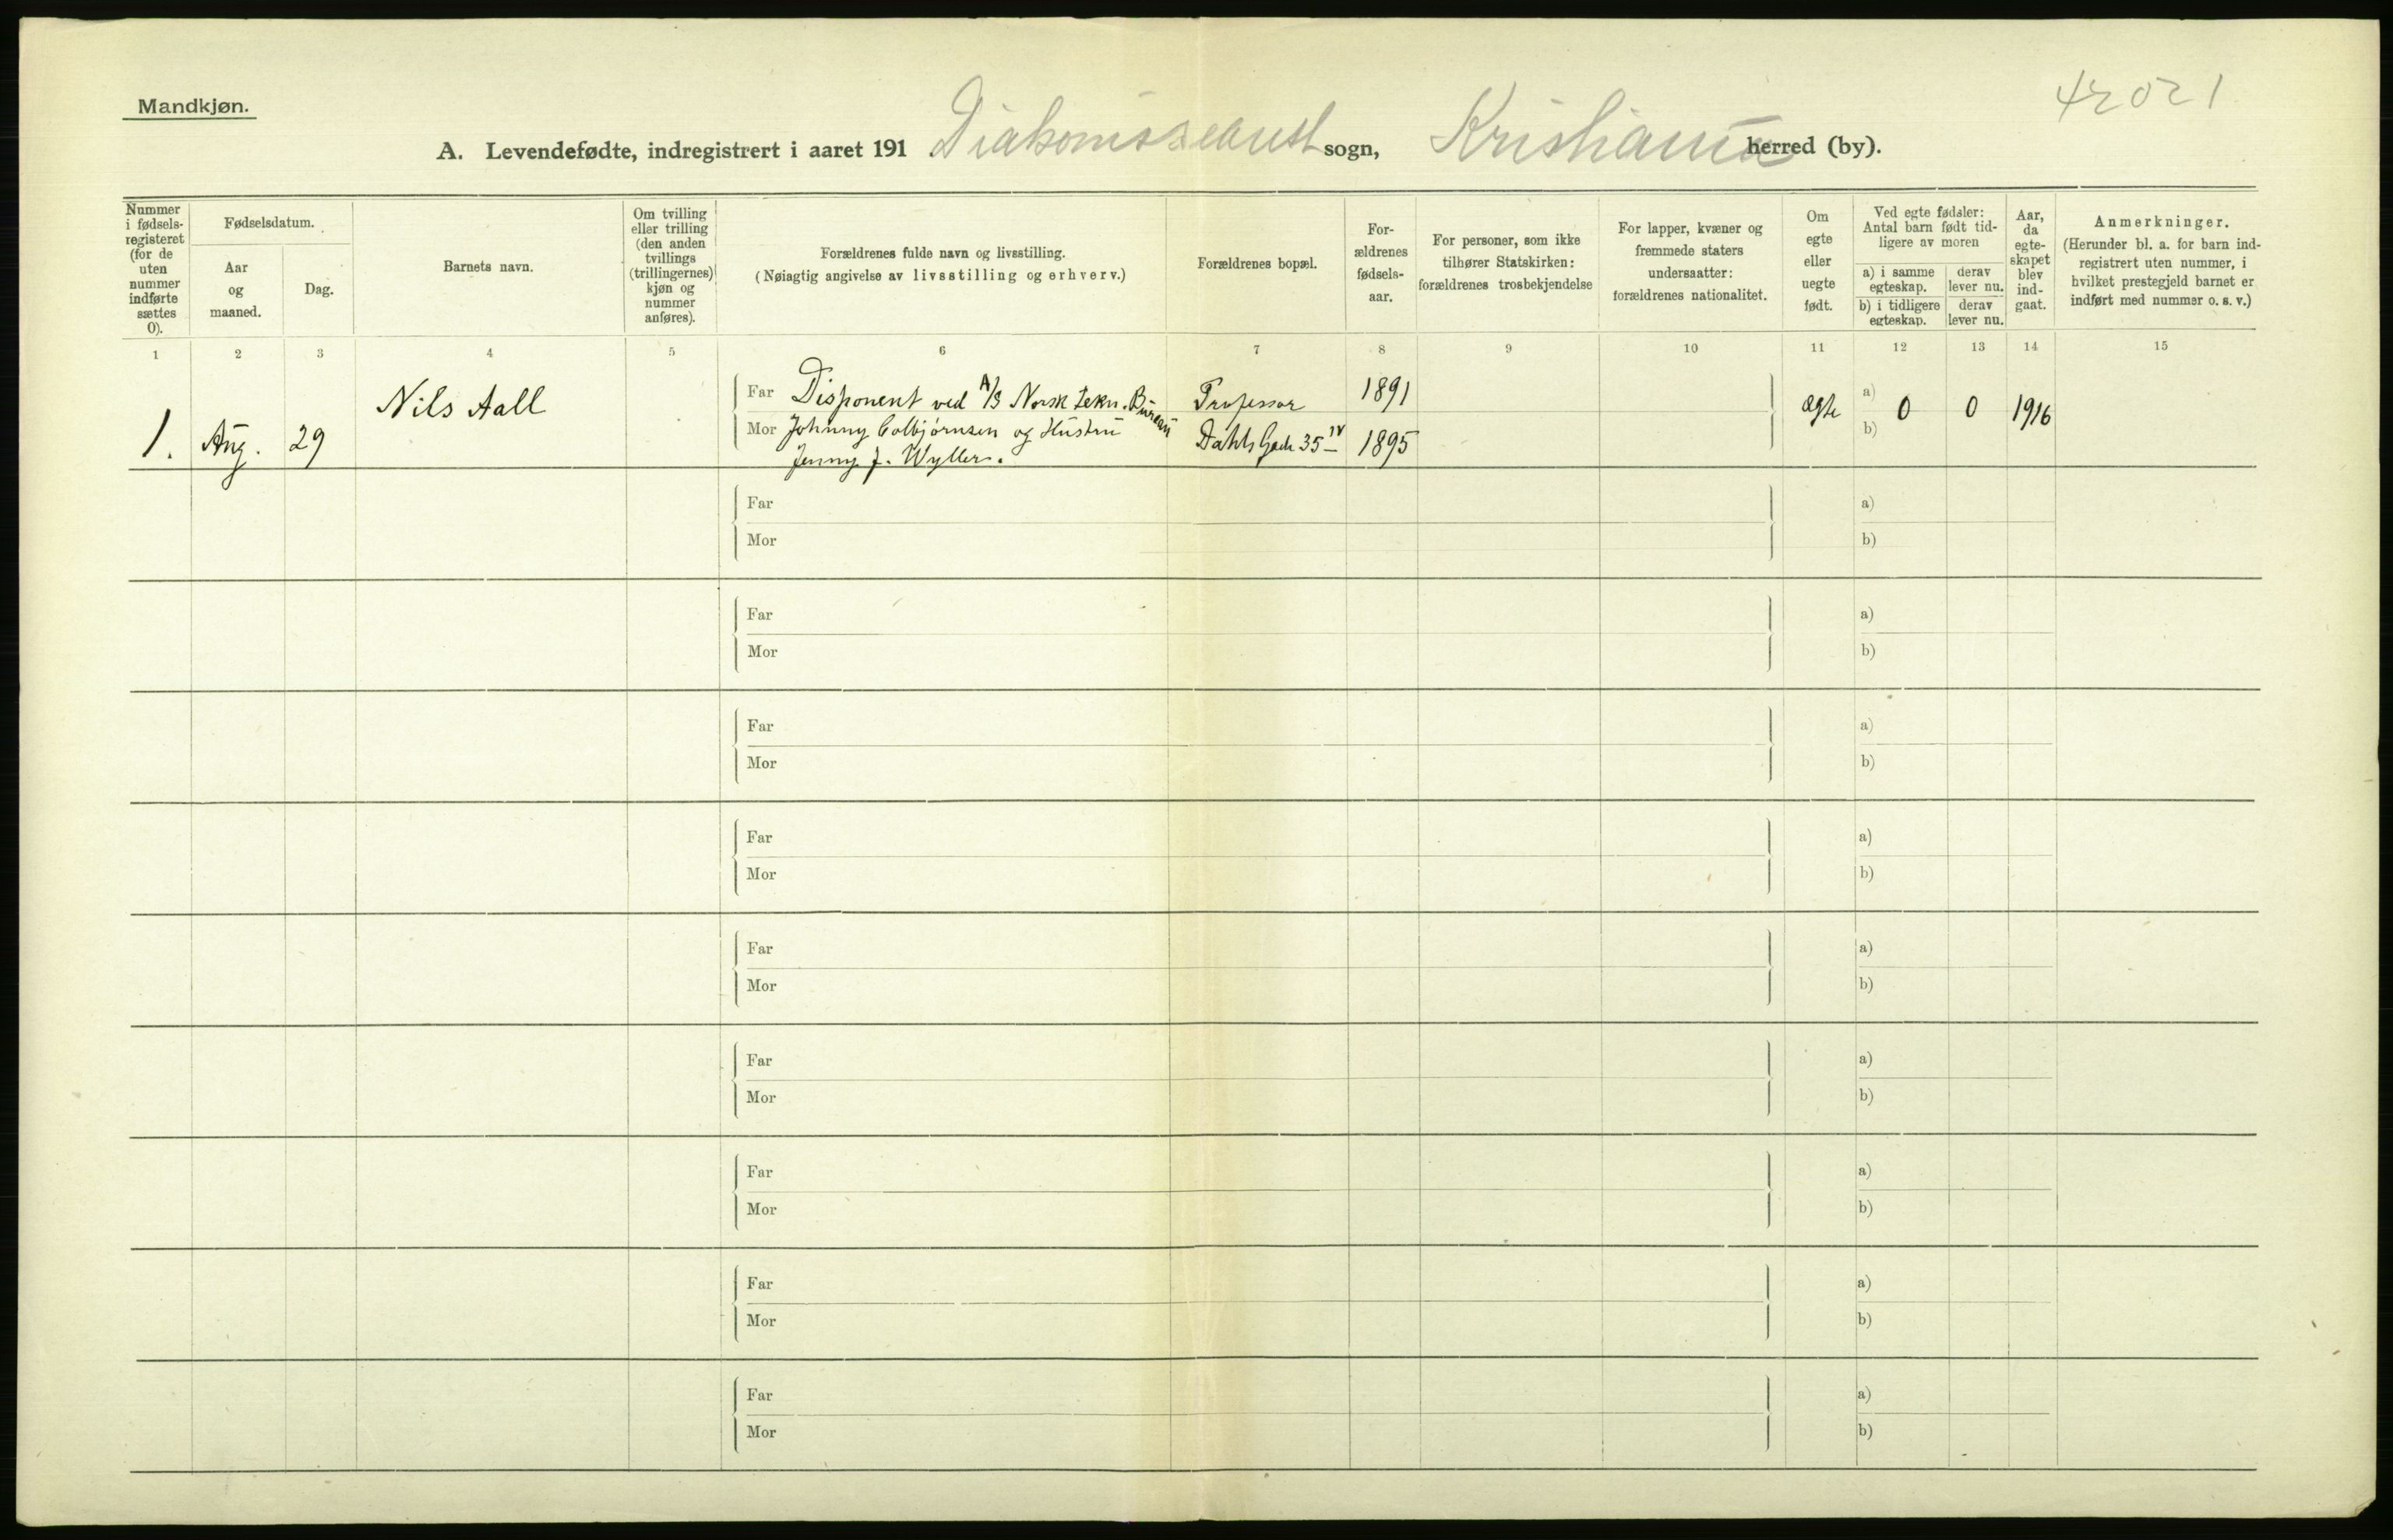 42021
Mandkjøn.
A. Levendefødte, indregistrert i aaret 191 Diakonisseanst sogn, Kristiania herred (by).
Nummer i fødsels-registeret (for de uten nummer indførte sættes 0).
Fødselsdatum.
Aar og maaned.
Dag.
Barnets navn.
Om tvilling eller trilling (den anden tvillings (trillingernes) kjøn og nummer anføres).
Forældrenes fulde navn og livsstilling.
(Nøiagtig angivelse av livsstilling og erhverv.)
Forældrenes bopæl.
For-ældrenes fødsels-aar.
For personer, som ikke tilhører Statskirken: forældrenes trosbekjendelse
For lapper, kvæner og fremmede staters undersaatter: forældrenes nationalitet.
Om egte eller uegte født.
Ved egte fødsler: Antal barn født tid-ligere av moren
a) i samme egteskap.
derav lever nu.
b) i tidligere egteskap.
derav lever nu.
Aar, da egte-skapet blev ind-gaat.
Anmerkninger.
(Herunder bl. a. for barn ind-registrert uten nummer, i hvilket prestegjeld barnet er indført med nummer o. s. v.)
1 2 3 4 5 6 7 8 9 10 11 12 13 14 15
1. Aug. 29 Nils Aall
Far Disponent ved A/S Norsk Tekn. Bureau Professor 1891 ægte a) 0 0 1916
Mor Johnny Colbjørnsen og Hustru Dahls Gade 35 IV 1895 b)
Jenny J. Wyller.
Far a)
Mor b)
Far a)
Mor b)
Far a)
Mor b)
Far a)
Mor b)
Far a)
Mor b)
Far a)
Mor b)
Far a)
Mor b)
Far a)
Mor b)
Far a)
Mor b)